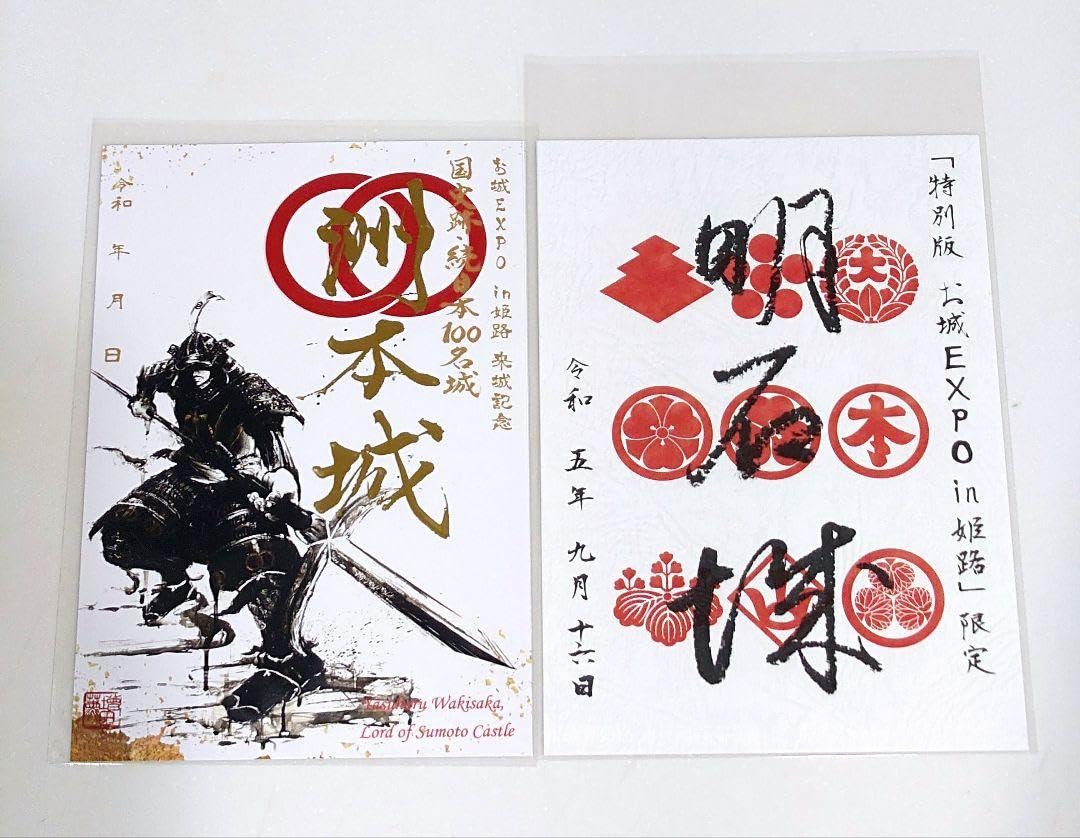 お城EXPO in姫路 来城記念
国史跡・続日本100名城
洲本城
令和 年 月 日
Yasuharu Wakisaka,
Lord of Sumoto Castle
「特別版 お城EXPO in姫路」限定
大
明石城
本
令和 五年 九月 十六日